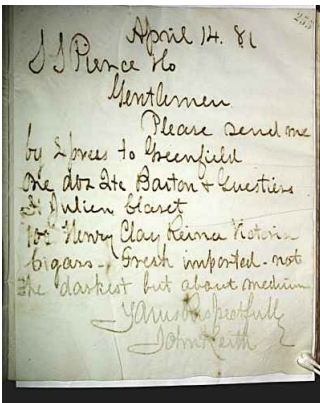 255
April 14. 81
S S Pierce & Co
Gentlemen
Please send me
by Express to Greenfield
One doz Qts Barton & Guestiers
St Julien Claret
100 Henry Clay Reina Victoria
Cigars - Fresh imported - not
the darkest but about medium
Yours Respectfully
John Keith